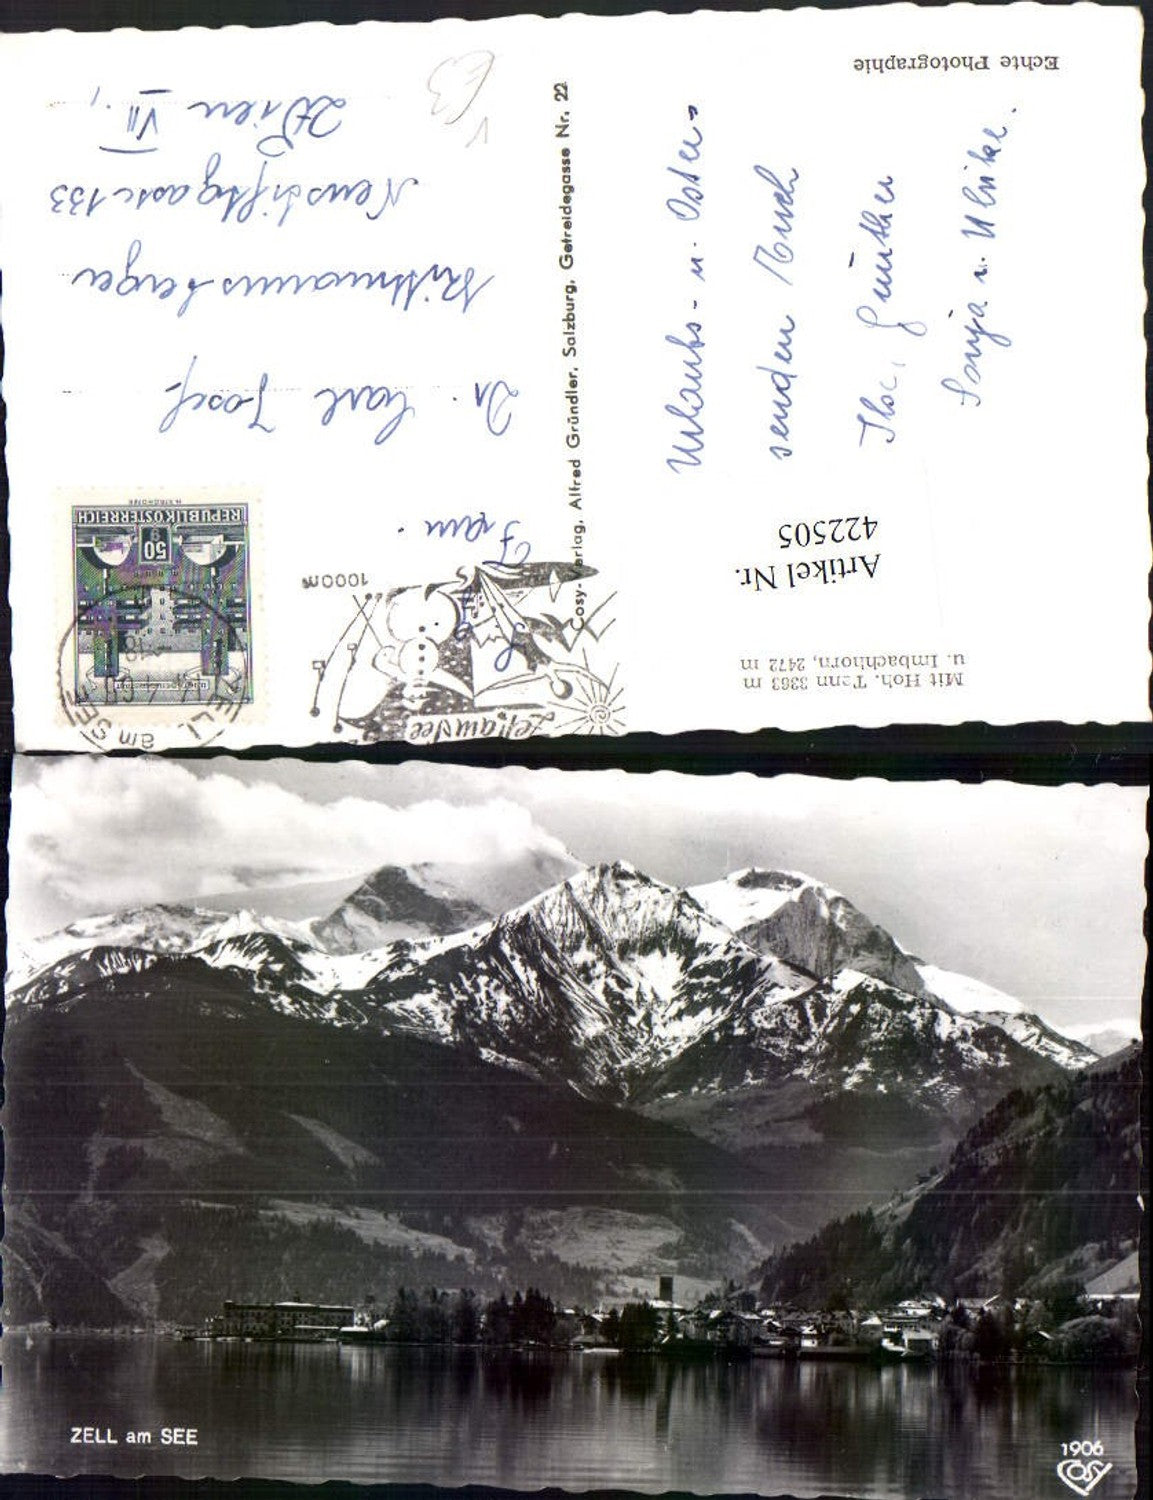 Echte Photographie
Urlaubs- u. Oster-
senden Euch
Ilse, Günther
Sonja u. Ulrike.
Artikel Nr.
422505
Mit Hoh. Tenn 3363 m
u. Imbachhorn, 2472 m
Cosy-Verlag, Alfred Gründler, Salzburg, Getreidegasse Nr. 22
Zell am See
1000m
ZELL am SEE
REPUBLIK ÖSTERREICH
50 g
Dr. Carl Josef
Neustiftgasse 133
Wien VII.,
ZELL am SEE
1906
COSY